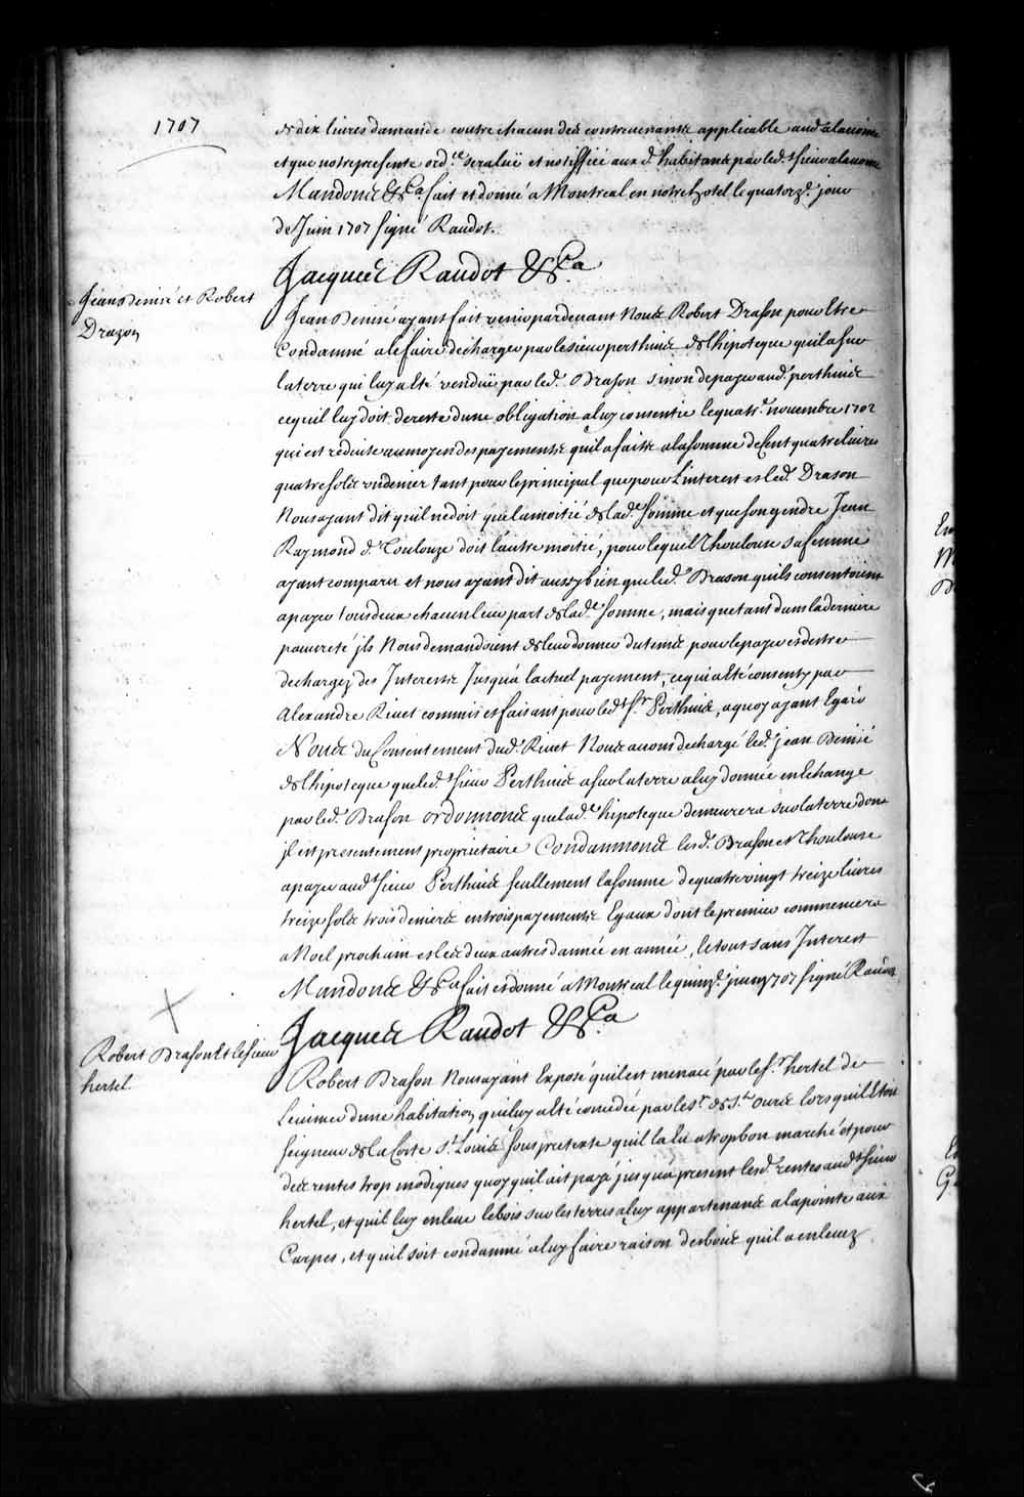 1707
de dix livres damande contre chacun des contrevenants applicable aud
et que notre presente ord.ce sera luë et notiffiée aux d. habitants par led. sieur
Mandons &c.a fait et donné a Montreal en notre hotel le quatorz.e jour
de Juin 1707 signé Raudot.
Jacques Raudot &c.a
Jean Denisé et Robert
Drazon
Jean Denisé ayant fait venir pardevant Nous Robert Drason pour Etre
Condamné a le faire decharger par le sieur perthuis de lhipoteque quil a sur
la terre qui luy a Eté venduë par led. Drason sinon de payer aud. perthuis
ce quil luy doit de reste dune obligation a luy consentie le quatr.e novembre 1702
qui est reduite au moyen des payements quil a faits a la somme de Cent quatre livres
quatre sols un denier tant pour le principal que pour L'interest et led. Drason
Nous ayant dit quil ne doit que la moitié de lad.e somme et que son gendre Jean
Raymond d.t Toulouze doit l'autre moitié, pour lequel Thoulouse sa femme
ayant comparu et nous ayant dit aussy bien que led. Drason quils consentoient
a payer tous deux chacun leur part de lad.e somme, mais quetant dans la derniere
pauvreté ils Nous demandoient de leur donner du tems pour le payer et destre
dechargez des Interests Jusqu'a lactuel payement, ce qui a Eté consenty par
Alexandre Rivet commis et faisant pour led.t S.r Perthuis, a quoy ayant Egard
Nous du Consentement dud. Rivet Nous avons dechargé led. jean Denisé
de lhipoteque que led.t sieur Perthuis a sur la terre a luy donnée en Echange
par led. Drason ordonnons que lad.e hipoteque demeurera sur la terre dont
jl est presentement proprietaire Condamnons lesd. Drason et Thoulouse
a payer aud.t sieur Perthuis seullement la somme de quatre vingt treize livres
treize sols trois deniers en trois payements Egaux dont le premier commencera
a Noel prochain et les deux autres dannée en année, le tout sans Interest
Mandons &c.a fait et donné a Montreal le quinz.e juin 1707 signé Raudot
Jacques Raudot &c.a
Robert Drason Et le sieur
hertel.
Robert Drason Nous ayant Exposé quil est menacé par le s.r hertel de
Levincer dune habitation qui luy a Eté concedée par le s.r de S.t ours lors quil Etoit
seigneur de la Coste S.t Louis sous pretexte quil la lui a trop bon marché et pour
des rentes trop modiques quoy quil ait payé jusqu'a present lesd. rentes aud.t sieur
hertel, et quil luy enleve le bois sur les terres a luy appartenans a la pointe aux
Carpes, et quil soit condamné a luy faire raison des bois quil a enlevez